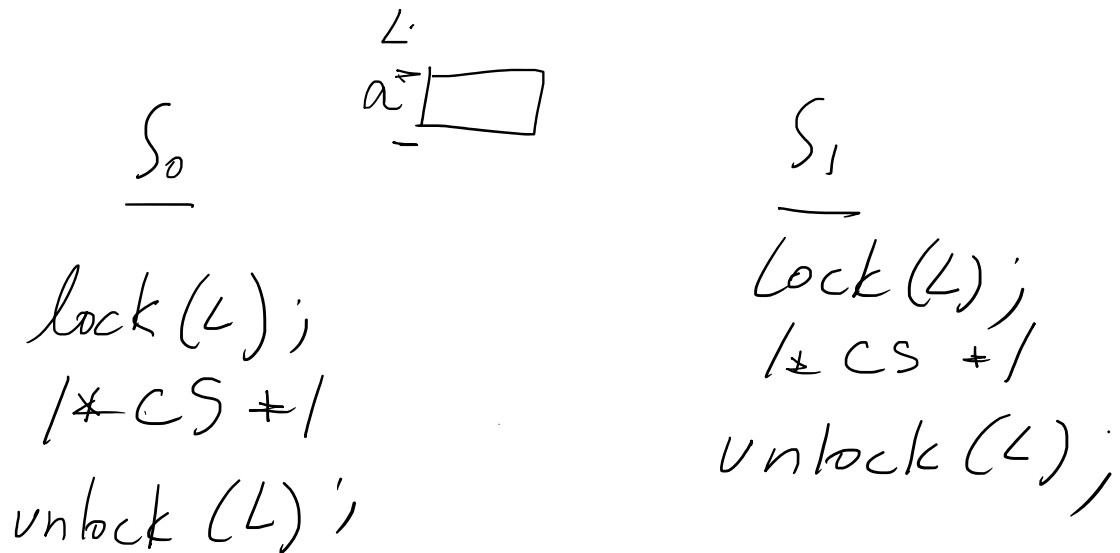 L
a
S₀
lock(L);
/* CS */
unlock(L);
S₁
lock(L);
/* CS */
unlock(L);